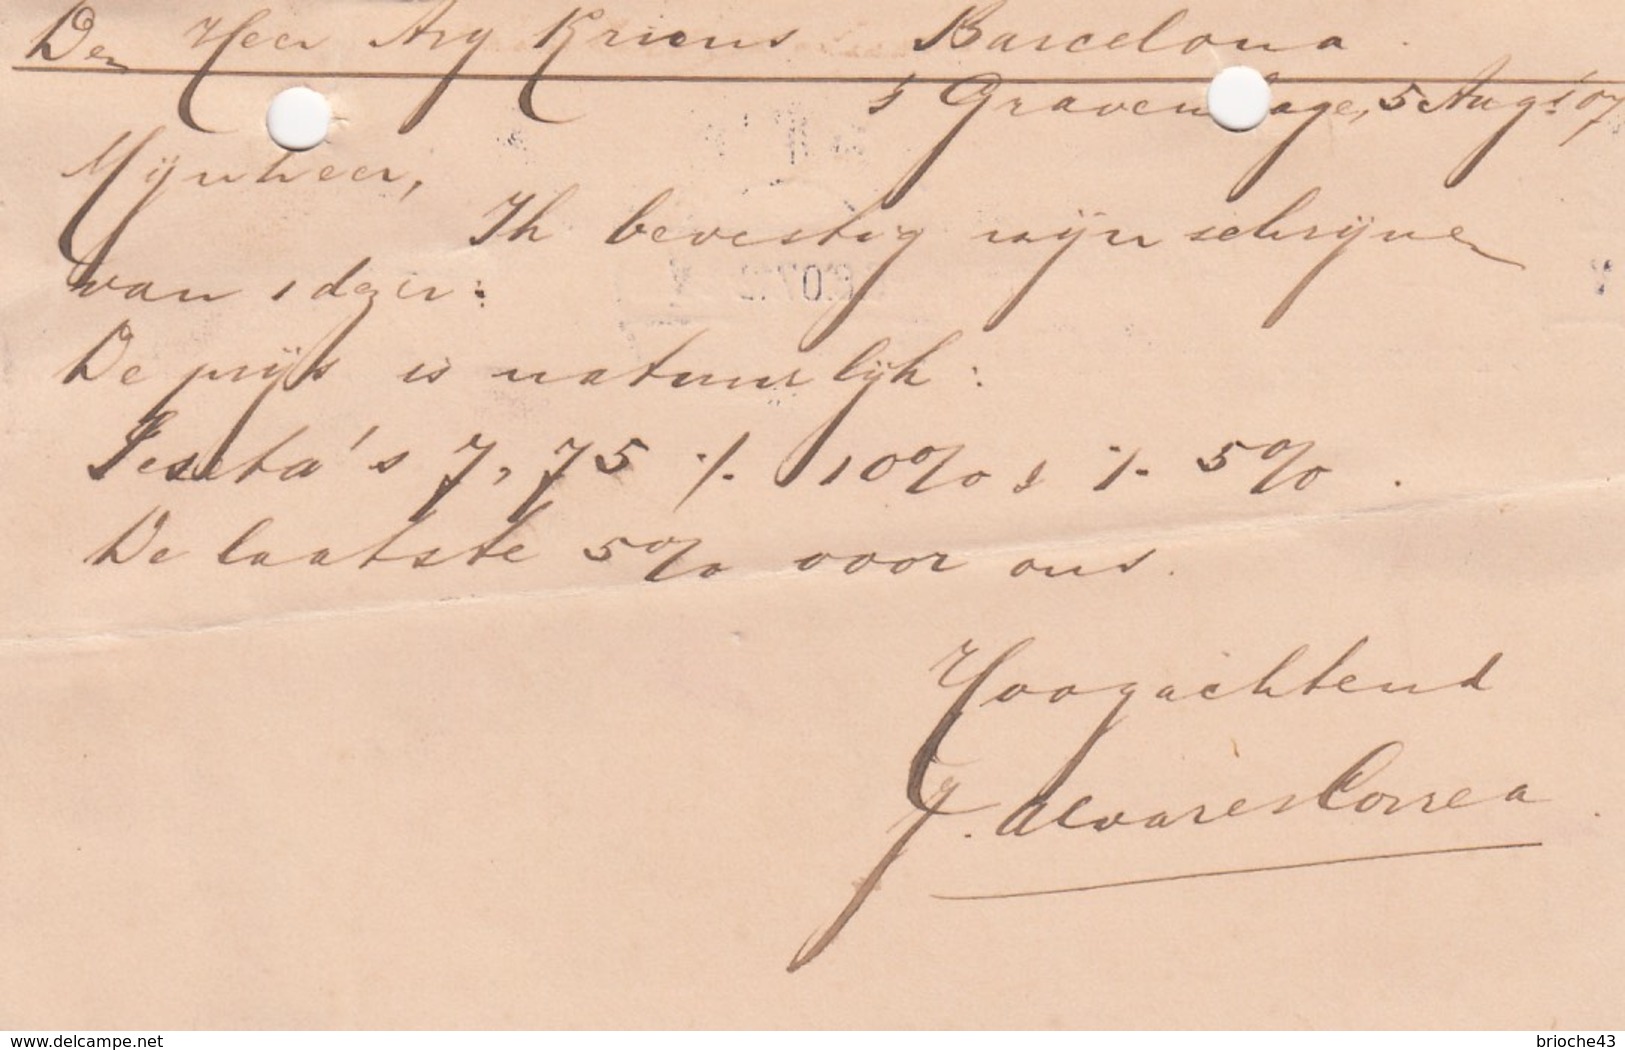 Den Heer Arg Kriens Barcelona.
's Gravenhage, 5 Aug. '07
Mijnheer,
Ik bevestig mijn schrijven
van 1 dezer:
De prijs is natuurlijk:
Peseta's 7,75 ./. 10% & ./. 5%.
De laatste 5% voor ons.
Hoogachtend
J. Alvares Correa
www.delcampe.net
brioche43